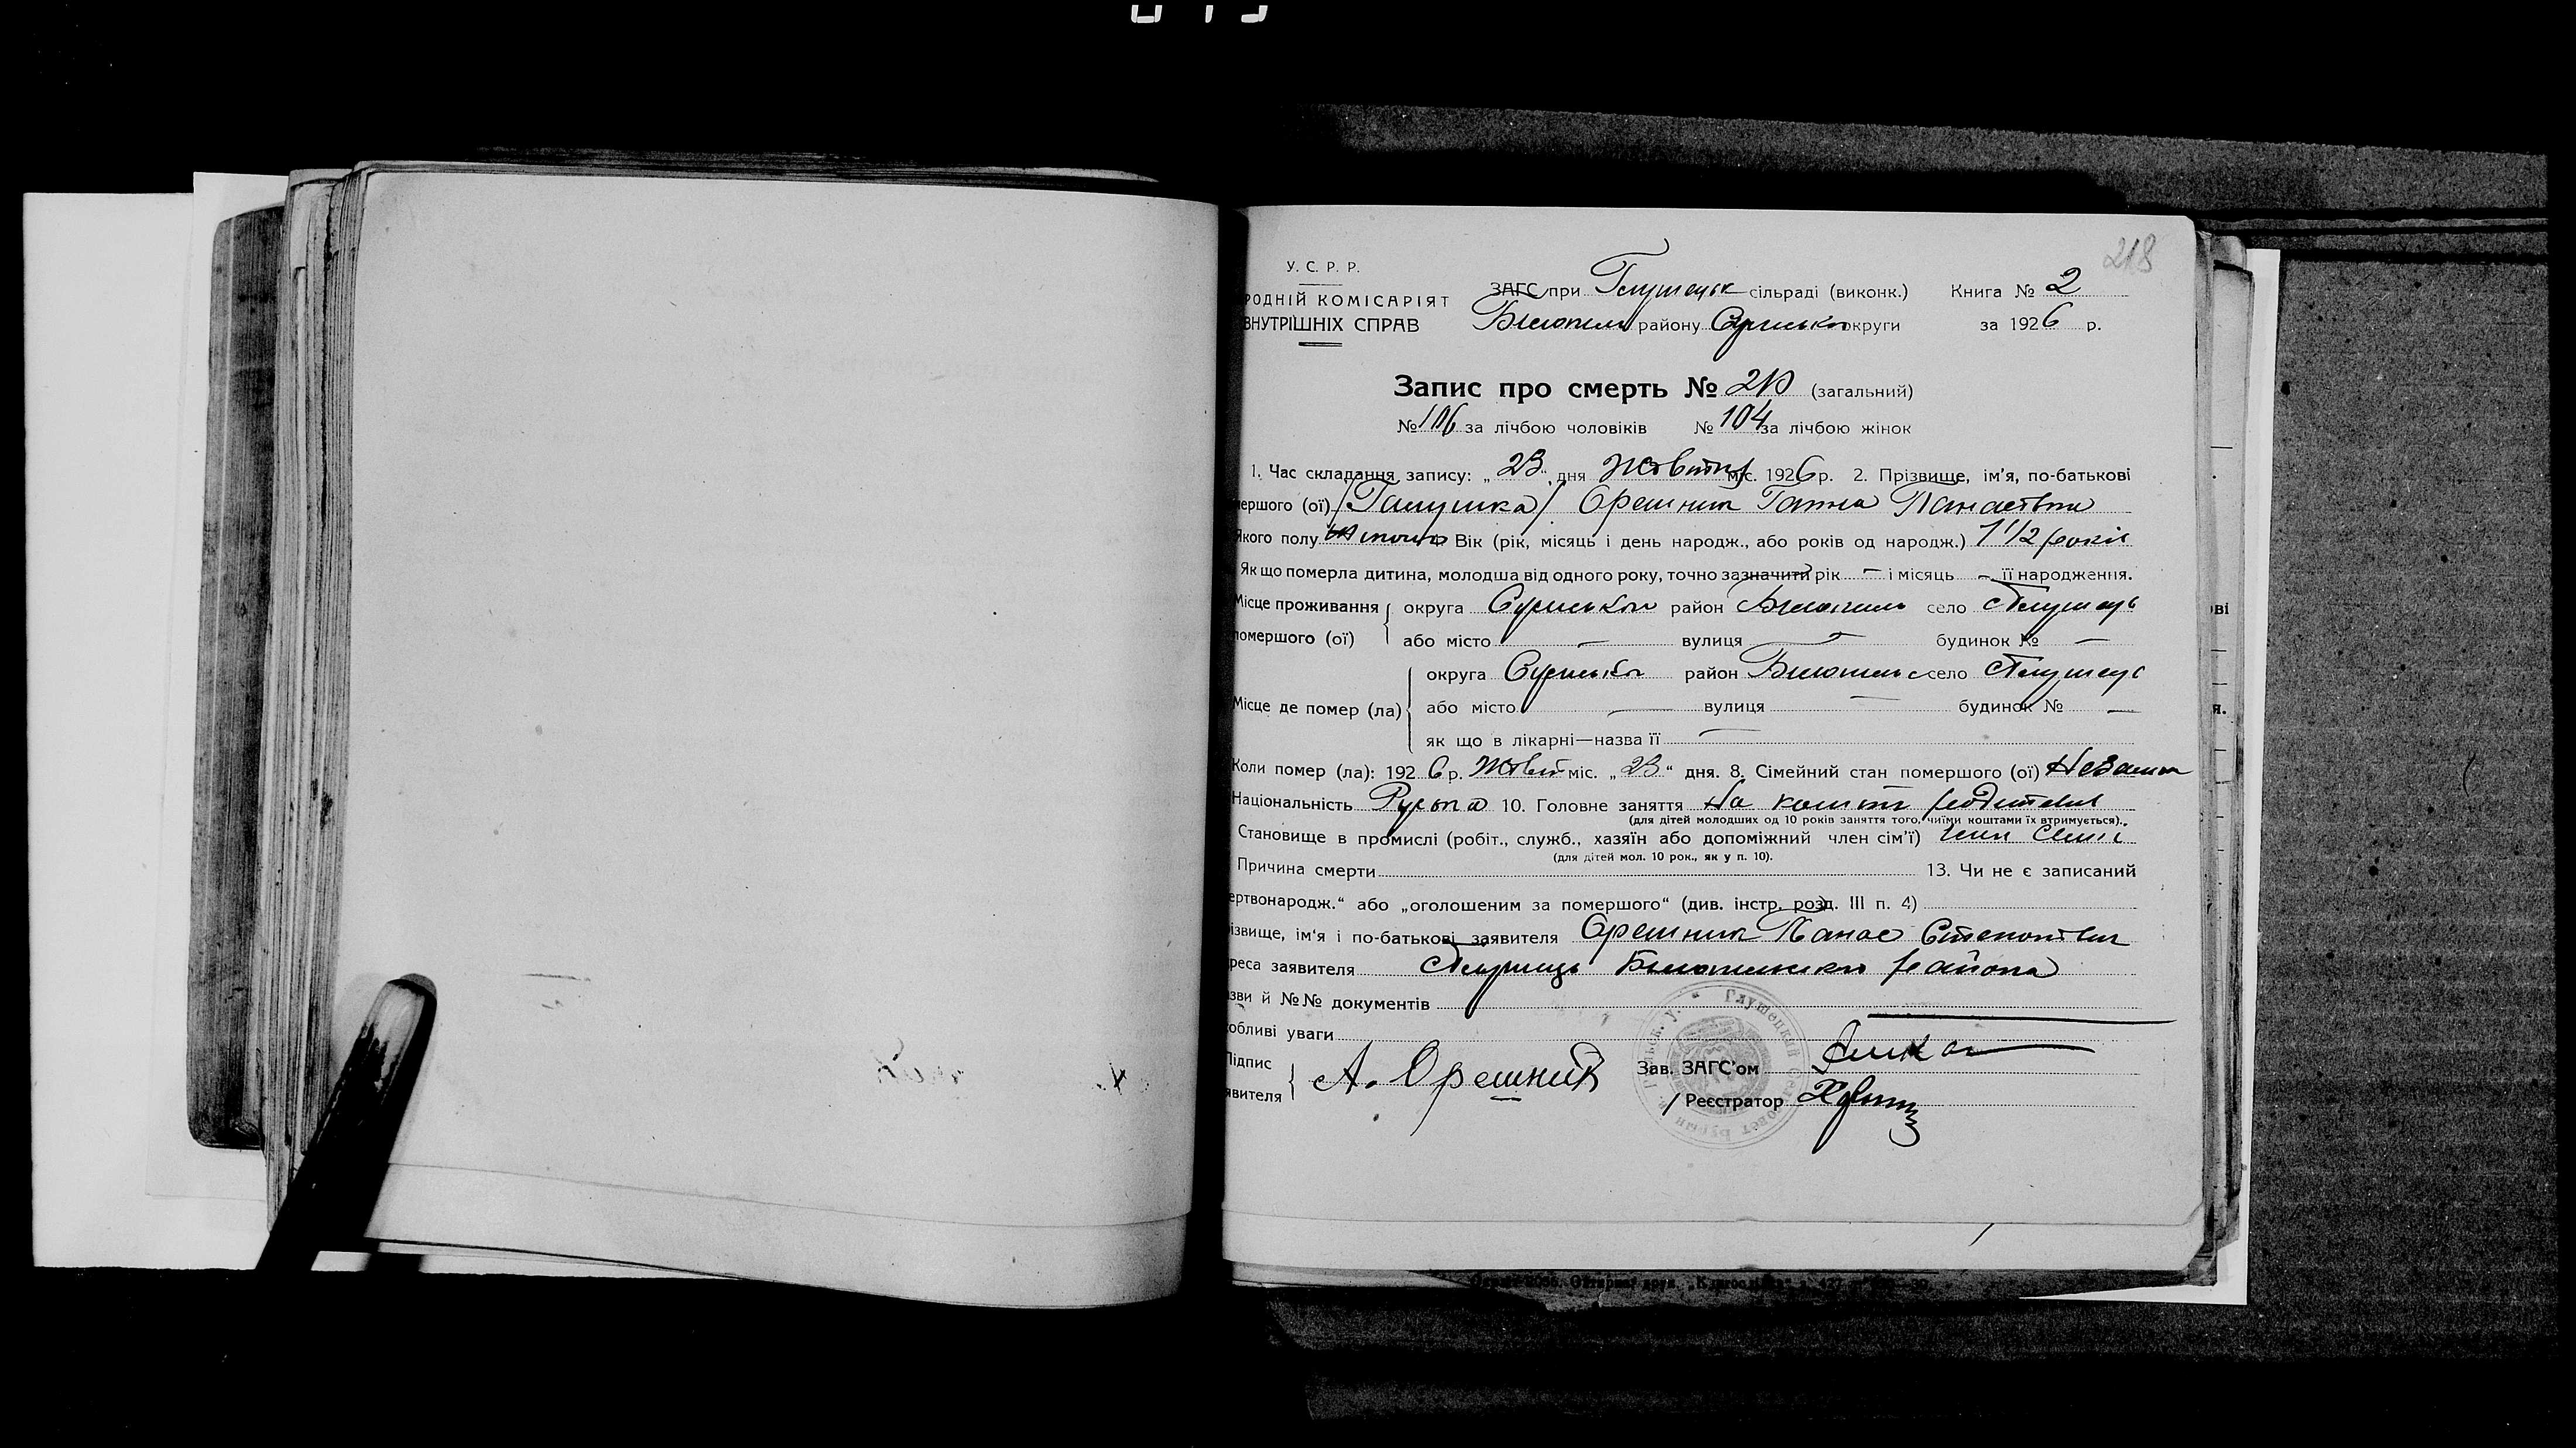 218
У. С. Р. Р.
РОДНІЙ КОМІСАРІЯТ
ВНУТРІШНІХ СПРАВ
ЗАГС при Глушецьк сільраді (виконк.) Книга № 2
Білопіль району Сумської округи за 1926 р.
Запис про смерть № 210 (загальний)
№ 106 за лічбою чоловіків № 104 за лічбою жінок
1. Час складання запису: „23“ дня Жовтня міс. 1926 р. 2. Прізвище, ім’я, по-батькові
мершого (ої) /Галушка/ Орешник Ганна Панасівна
Якого полу жіночо Вік (рік, місяць і день народж., або років од народж.) 1 1/2 років
Як що померла дитина, молодша від одного року, точно зазначити рік — і місяць — її народження.
Місце проживання помершого (ої) { округа Сумської район Білопіль село Глушець
або місто — вулиця — будинок № —
Місце де помер (ла) { округа Сумської район Білопільс село Глушець
або місто — вулиця — будинок № —
як що в лікарні—назва її —
Коли помер (ла): 1926 р. Жовт міс. „23“ дня. 8. Сімейний стан помершого (ої)
Національність Руська 10. Головне заняття На кошти родителів
(для дітей молодших од 10 років заняття того, чиїми коштами їх втримується).
Становище в промислі (робіт., служб., хазяїн або допоміжний член сім’ї) член семі
(для дітей мол. 10 рок., як у п. 10).
Причина смерти 13. Чи не є записаний
ертвонародж.“ або „оголошеним за помершого“ (див. інстр. розд. III п. 4)
ізвище, ім‘я і по-батькові заявителя Орешник Панас Степанович
дреса заявителя Глушець Білопільського района
зви й №№ документів
обливі уваги
Підпис
явителя { А. Орешник
Зав. ЗАГС’ом
/ Реєстратор
Глушецкий Сельсовет